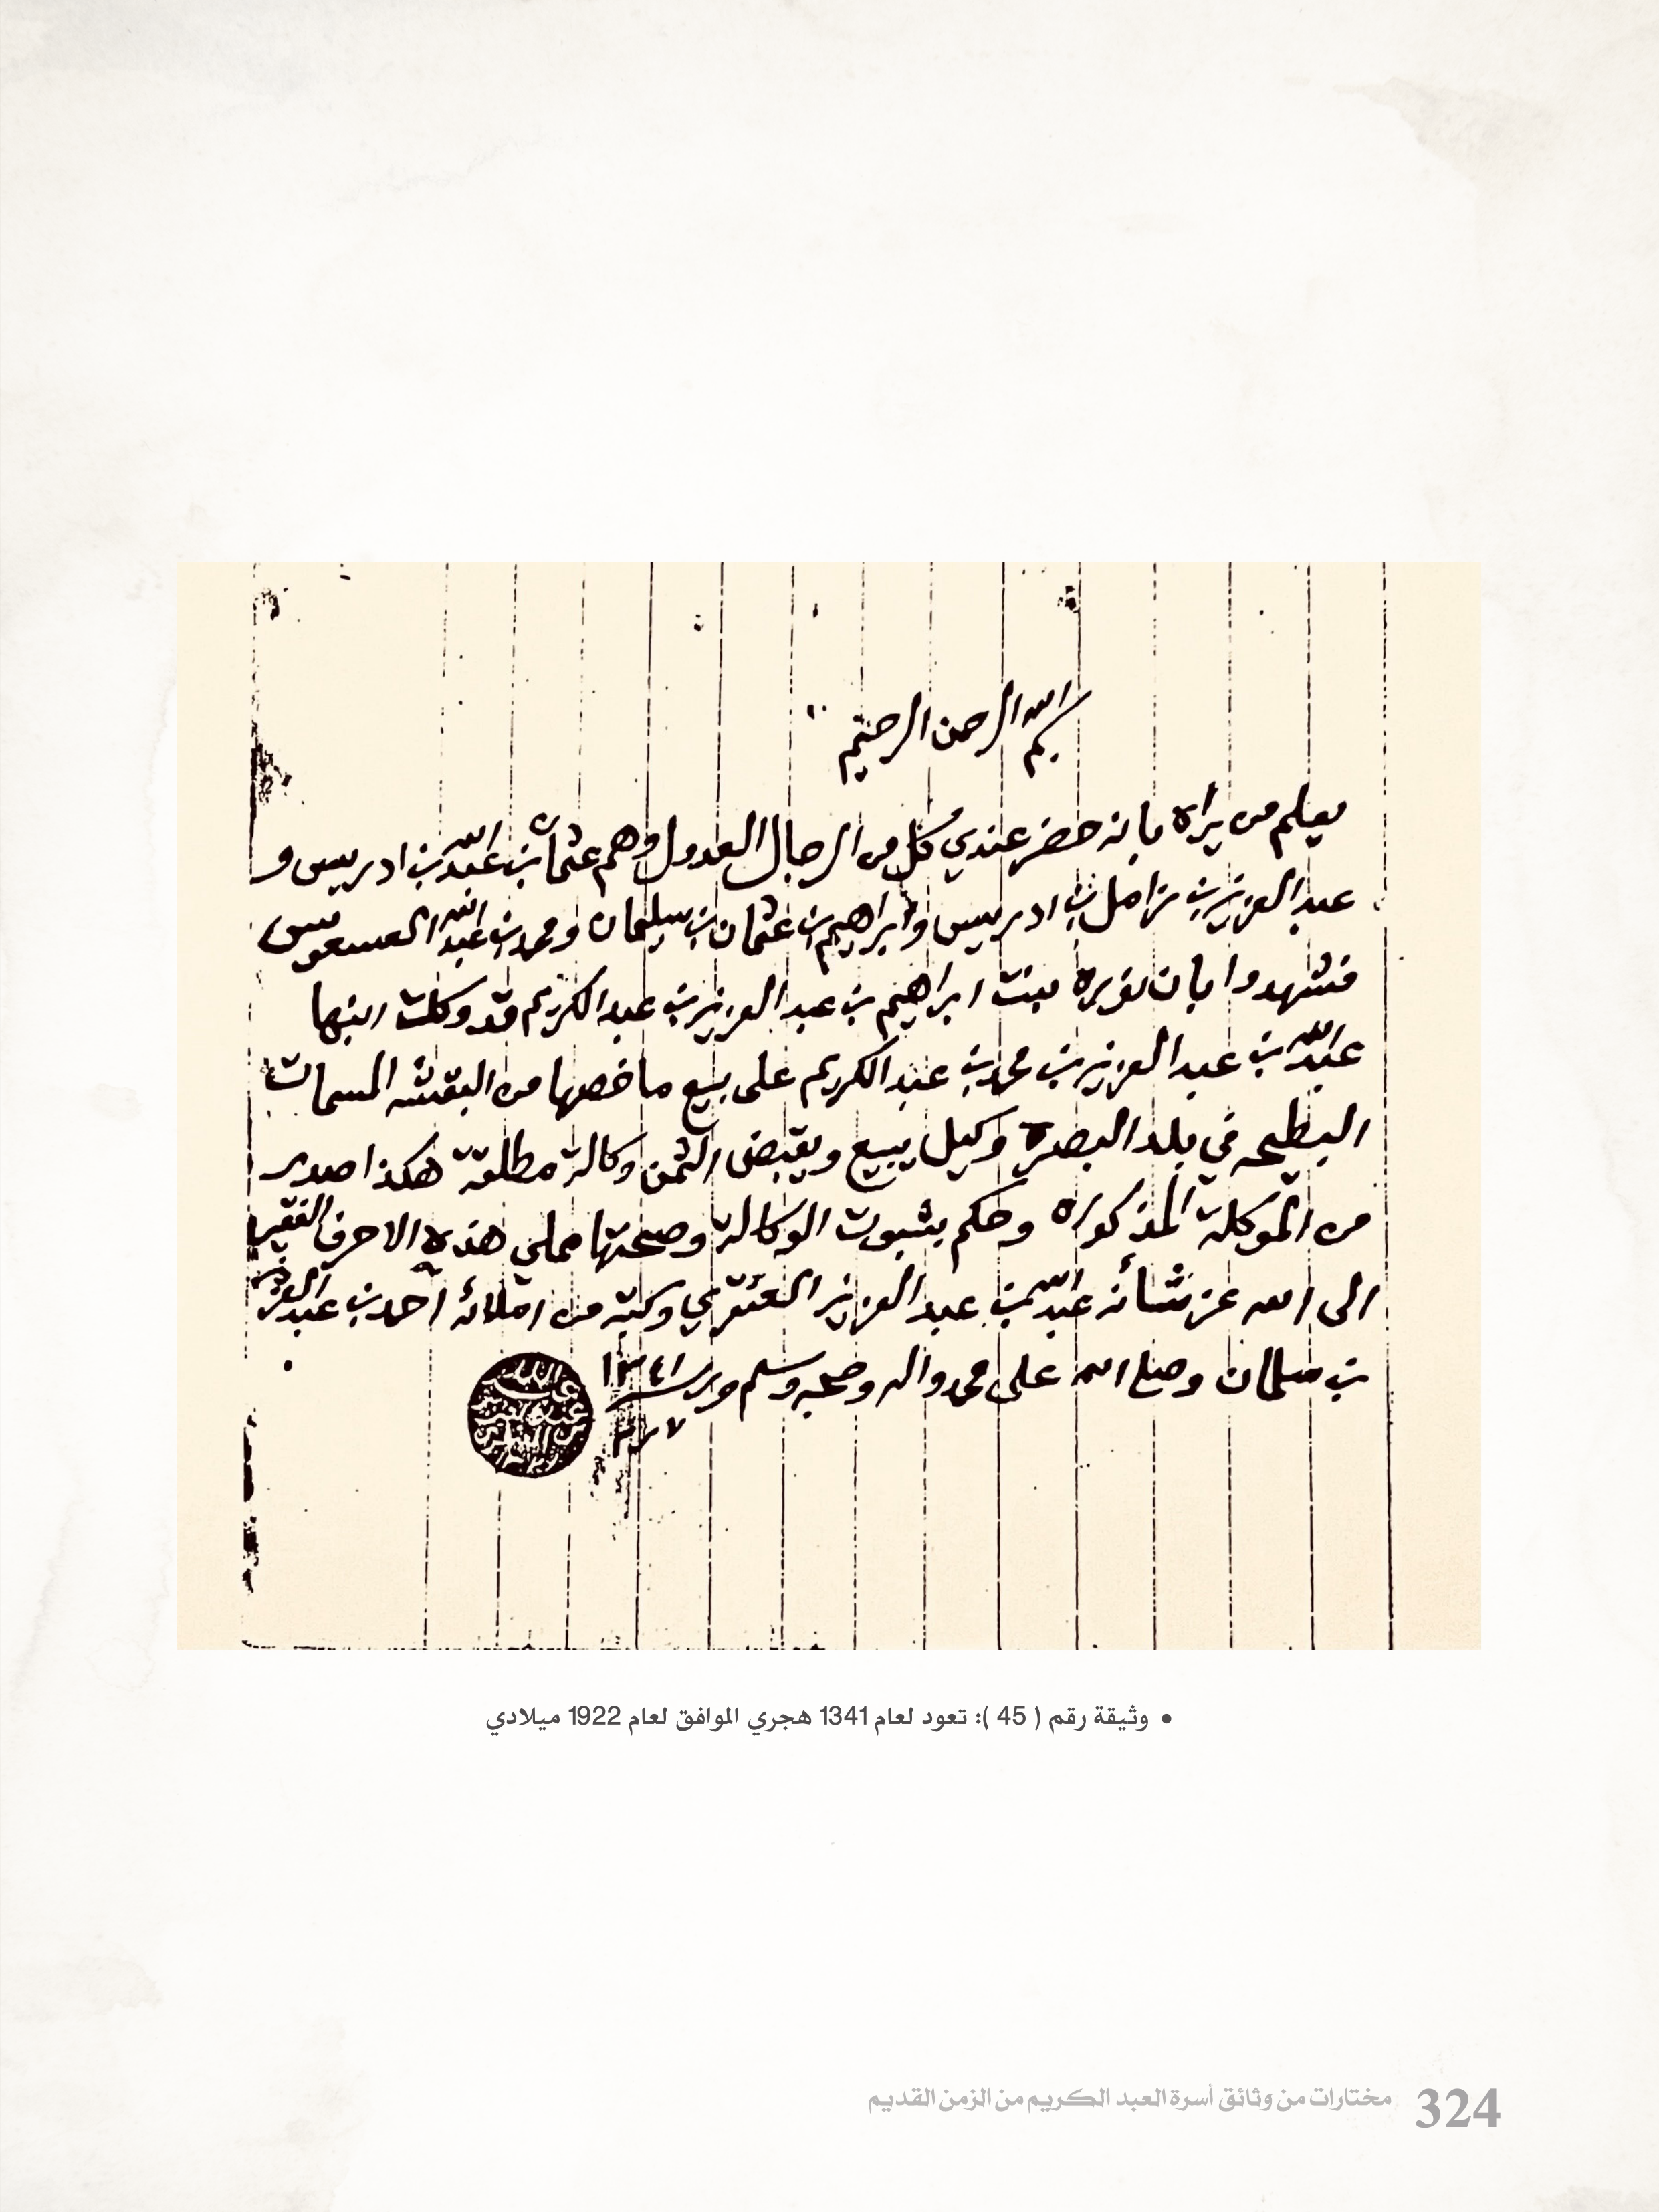 بسم الله الرحمن الرحيم
يعلم من يراه بانه حضر عندي كل من الرجال العدول وهم عثمان بن عبدالله بن ادريس و
عبدالعزيز بن زامل بن ادريس وابراهيم بن عثمان بن سليمان ومحمد بن عبدالله
فشهدوا بان نويره بنت ابراهيم بن عبدالعزيز بن عبدالكريم قد وكلت ابنها
عبدالله بن عبدالعزيز بن محمد بن عبدالكريم على بيع ما خصها من البقشه المسمات
البطيحه في بلد البصرة وكيل يبيع ويقبض الثمن وكالة مطلقة هكذا صدر
من الموكلة المذكوره وحكم بثبوت الوكالة وصحتها مملي هذه الاحرف الفقير
الى الله عز شأنه عبدالله بن عبدالعزيز العنقري وكتبه من املائه احمد بن عبدالعزيز
بن سلمان وصلى الله على محمد واله وصحبه وسلم ١٣٤١
• وثيقة رقم ( 45 ): تعود لعام 1341 هجري الموافق لعام 1922 ميلادي
324 مختارات من وثائق أسرة العبد الكريم من الزمن القديم